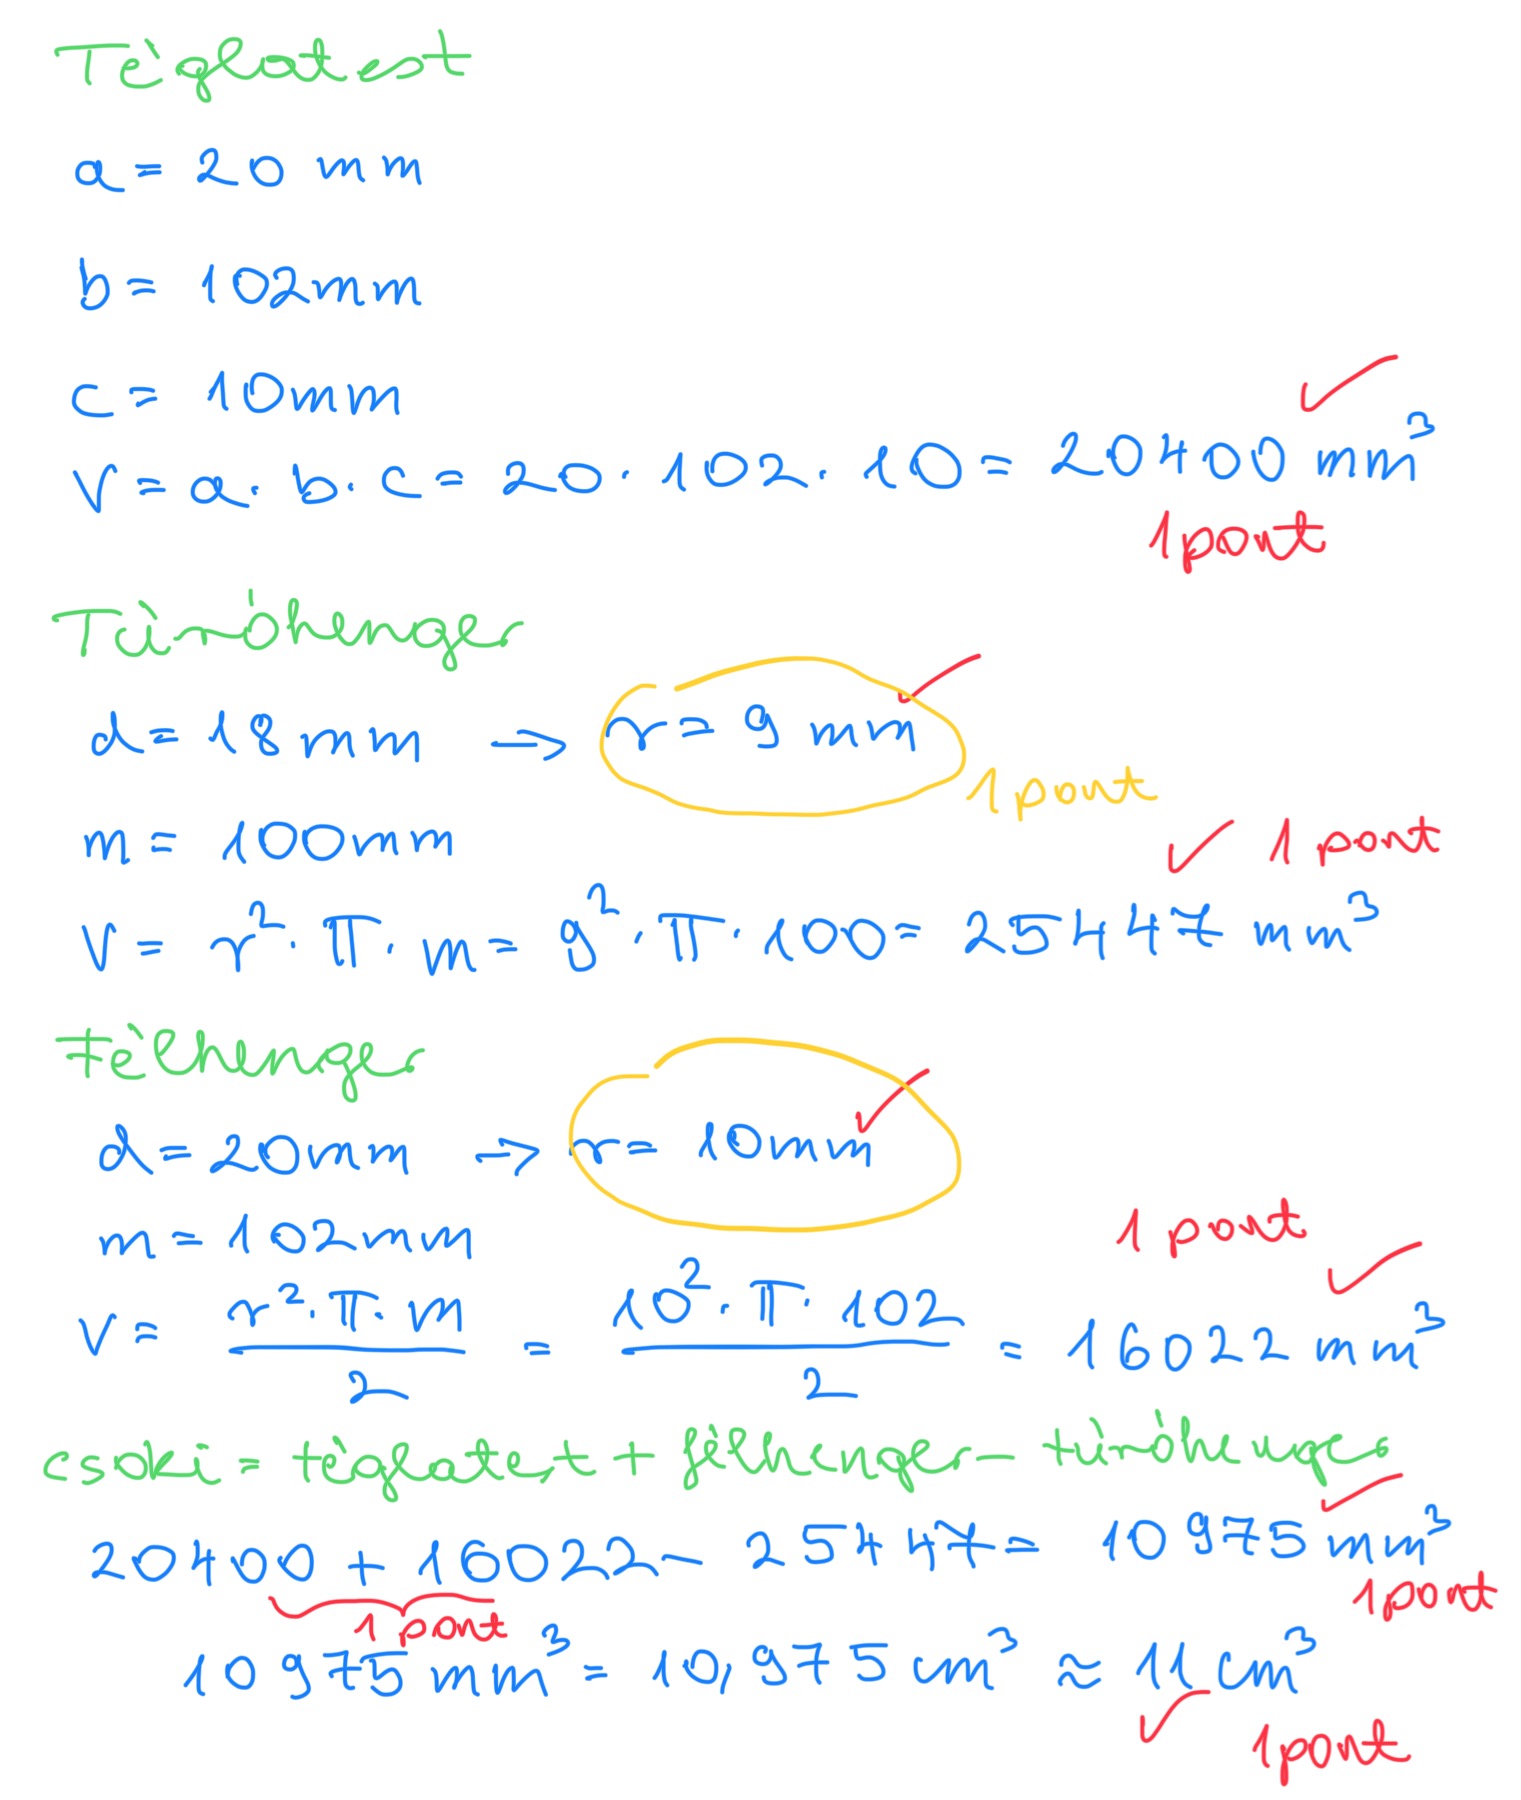 Téglatest
a = 20 mm
b = 102mm
c = 10mm
V = a · b · c = 20 · 102 · 10 = 20400 mm³
1 pont
Túróhenger
d = 18 mm → r = 9 mm
1 pont
m = 100mm
1 pont
V = r² · π · m = 9² · π · 100 = 25447 mm³
Félhenger
d = 20mm → r = 10mm
m = 102mm
1 pont
V = r² · π · m / 2 = 10² · π · 102 / 2 = 16022 mm³
csoki = téglatest + félhenger - túróhenger
20400 + 16022 - 25447 = 10975 mm³
1 pont
1 pont
10975 mm³ = 10,975 cm³ ≈ 11 cm³
1 pont